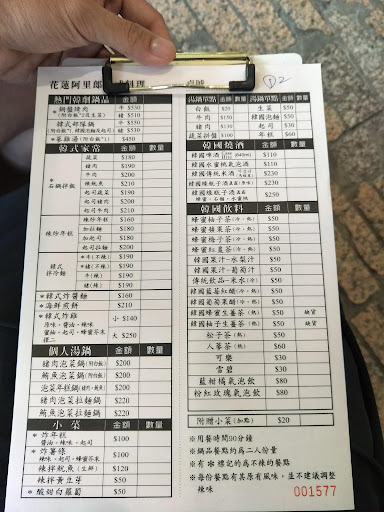 花蓮阿里郎 式料理 桌號 D2
熱門韓劇鍋品 金額 數量
*銅盤烤肉 牛 $530
(附白飯*2及生菜) 豬 $510
*韓式部隊鍋 牛 $550
(附白飯*1、韓國泡麵及起司) 豬 $530
*蔘雞湯(附白飯*1) $450
韓式家常 金額 數量
*石鍋拌飯 蔬菜 $180
豬肉 $190
牛肉 $200
辣魷魚 $210
起司蔬菜 $190
起司豬肉 $200
起司牛肉 $210
辣炒年糕 辣炒年糕 $160
加拉麵 $180
加起司 $180
起司拉麵 $200
韓式拌冷麵 *牛(不辣) $190
*豬(不辣) $190
牛(辣) $190
豬(辣) $190
*韓式炸醬麵 $160
*海鮮煎餅 $210
*韓式炸雞 小 $140
原味、醬油、辣味
蜜柚、起司、蜂蜜芥末 大 $250
擇二
個人湯鍋 金額 數量
豬肉泡菜鍋(附白飯) $200
鮪魚泡菜鍋(附白飯) $200
泡菜年糕鍋(豬肉、鮪魚) $200
豬肉泡菜拉麵鍋 $220
鮪魚泡菜拉麵鍋 $220
小菜 金額 數量
*炸年糕 $100
醬油、辣味、起司
*炸薯條 $100
辣味、起司、蜂蜜芥末
辣拌魷魚(生鮮) $120
辣拌黃豆芽 $50
*酸甜白蘿蔔 $50
湯鍋單點 金額 湯鍋單點 金額
白飯 $20 生菜 $50
牛肉 $150 韓國泡麵 $50
豬肉 $130 起司 $30
蔬菜拼盤 $100 年糕 $60
韓國燒酒 金額 數量
韓國啤酒 (640ml) $110
韓國水蜜桃氣泡酒 $110
韓國傳統米酒 $230
韓國燒瓶子酒 $210
韓國燒瓶子酒 $230
蜂蜜、石榴、水蜜桃
韓國飲料 金額 數量
蜂蜜柚子茶(冷、熱) $50
蜂蜜蘋果茶(冷、熱) $50
蜂蜜梅子茶(冷、熱) $50
蜂蜜紅棗茶(冷、熱) $50
韓國果汁-水梨汁 $50
韓國果汁-葡萄汁 $50
傳統飲品-米水(冷) $50
韓國藍莓紅醋(冷、熱) $50
韓國葡萄果醋(冷、熱) $50
韓國蜂蜜生薑茶(熱) $50 缺貨
韓國柚子生薑茶(熱) $50 缺貨
松子茶(熱) $50
人蔘茶(熱) $60
可樂 $30
雪碧 $30
藍柑橘氣泡飲 $80
粉紅玫瑰氣泡飲 $80
附贈小菜(加點) $20
※用餐時間90分鐘
※鍋品餐點約為二人份量
※有*標記的為不辣的餐點
※每份餐點有其原有風味,並不建議調整
辣味
001577